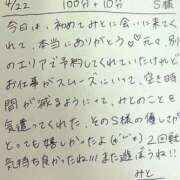 4/22　100分+10分　S様
今日は、初めてみとに会いに来てく
れて、本当にありがとう♡元々、別
のエリアで予約してくれていたけど
お仕事がスムーズにいって、空き時
間が減るようにって、みとのことを
気遣ってくれた、そのS様の優しさが
とっても嬉しかったよ(*´▽`*) 2回戦
気持ち良かったね!!! また遊ぼうね!!
みと